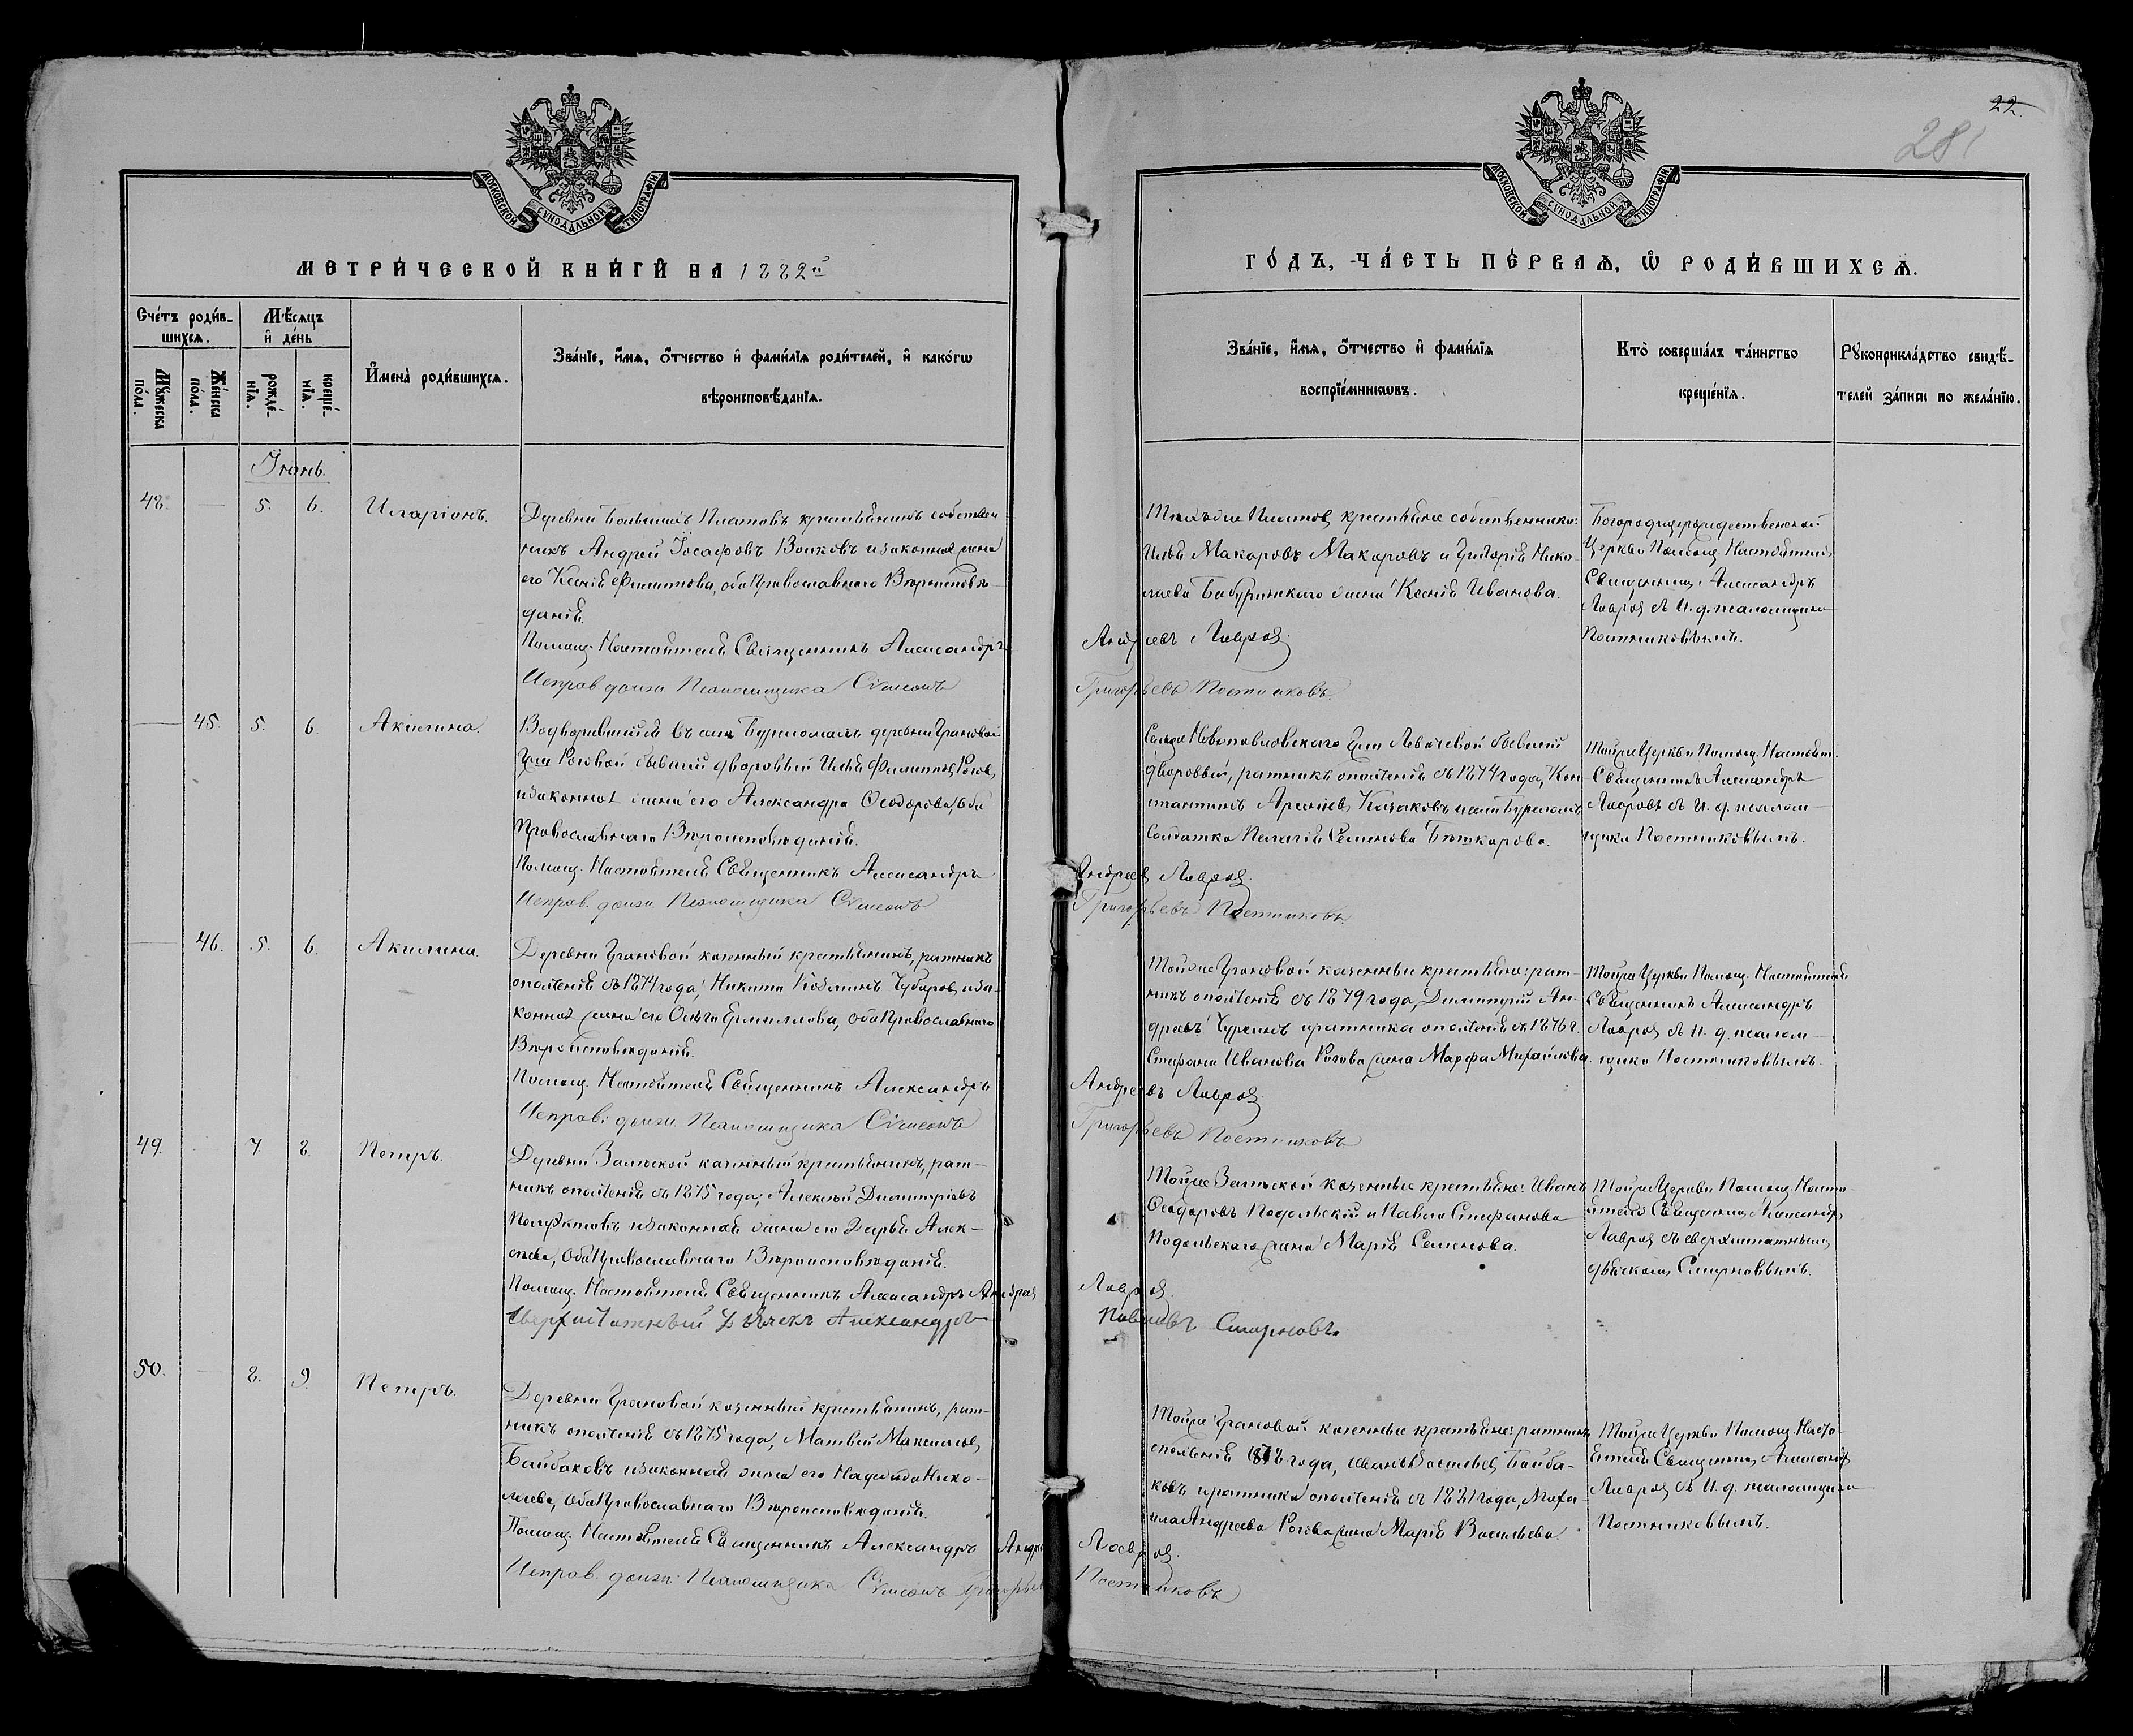 22.
281
МОСКОВСКОЙ СУНОДАЛЬНОЙ ТИПОГРАФІИ
МЕТРИ́ЧЕСКОЙ КНИ́ГИ НА 1882й
Сче́тъ роди́в-
шихсѧ.
Мѣ́сѧцъ
и҆ де́нь
Мꙋ́жеска
по́ла.
Же́нска
по́ла.
рожде́-
нїѧ.
креще́-
нїѧ.
И҆мена̀ роди́вшихсѧ.
Зва́нїе, и҆́мѧ, ѻ҆́тчество и҆ фами́лїѧ роди́телей, и҆ како́гѡ
вѣроисповѣ́данїѧ.
Іюнь.
48. — 5. 6. Иларіонъ.
Деревни Большихъ Платовъ крестьянинъ собствен-
никъ Андрей Іосафовъ Волковъ и законная жена
его Ксенія Филиппова, оба Православнаго Вѣроисповѣ-
данія.
Помощ. Настоятеля Священникъ Александръ
Исправ. долж. Псаломщика Сѵмеонъ
— 45. 5. 6. Акилина.
Водворившійся въ селѣ Бурломахъ деревни Грановой
Рогов,
и законная жена его Александра Ѳеодорова, оба
Православнаго Вѣроисповѣданія.
Помощ. Настоятеля Священникъ Александръ
Исправ. долж. Псаломщика Сѵмеонъ
— 46. 5. 6. Акилина.
Деревни Грановой казенный крестьянинъ, ратникъ
ополченія съ 1874 года, Никита Чубаров, и за-
конная жена его Ольга Ермиллова, оба Православнаго
Вѣроисповѣданія.
Помощ. Настоятеля Священникъ Александръ
Исправ. долж. Псаломщика Сѵмеонъ
49. — 7. 8. Петръ.
Деревни Зальской казенный крестьянинъ, рат-
никъ ополченія съ 1875 года, Алексѣй Димитріевъ
Полуэктовъ и законная жена его Дарья Алек-
сѣева, оба Православнаго Вѣроисповѣданія.
Помощ. Настоятеля Священникъ Александръ Андреев
Сверхштатный Дьячекъ Александръ
50. — 8. 9. Петръ.
Деревни Грановой казенный крестьянинъ, рат-
никъ ополченія съ 1875 года, Матвѣй Максимов
Байбаковъ и законная жена его Надежда Нико-
лаева, оба Православнаго Вѣроисповѣданія.
Помощ. Настоятеля Священникъ Александръ Андре
Исправ. долж. Псаломщика Сѵмеонъ Григорьев
МОСКОВСКОЙ СУНОДАЛЬНОЙ ТИПОГРАФІИ
ГО́ДЪ, ЧА́СТЬ ПЕ́РВАѦ, Ѡ҆ РОДИ́ВШИХСѦ.
Зва́нїе, и҆́мѧ, ѻ҆́тчество и҆ фами́лїѧ
воспрїе́мникѡвъ.
Кто̀ соверша́лъ та́инство
креще́нїѧ.
Рꙋкоприкла́дство свидѣ́-
телей за́писи по жела́нїю.
Платов, крестьяне собственники:
Илья Макаровъ Макаровъ и Григорія Нико-
лаева Бабуринскаго жена Ксенія Иванова.
Андреевъ Лавров.
Григорьевъ Постниковъ.
Богородицерождественской
Церкви Помощ. Настоятеля
Священник Александръ
Лавров съ И. д. псаломщика
Постниковымъ.
Сельца Новопавловскаго Левачевой бывшій
дворовый, ратникъ ополченія съ 1874 года, Кон-
стантинъ Арсеніев Казаковъ и
Солдатка Пелагія Семенова Бѣткарова.
Андреев Лавров.
Григорьевъ Постниковъ.
Тойже Церкви Помощ. Настоят.
Священникъ Александръ
Лавровъ съ И. д. псалом-
щика Постниковымъ.
Тойже Грановой казенные крестьяне: рат-
никъ ополченія съ 1879 года, Димитрій Ан-
дреевъ и ратника ополченія съ 1876 г.
Стефана Иванова Рогова жена Марфа Михайлова.
Андреевъ Лавров.
Григорьевъ Постниковъ
Тойже Церкви Помощ. Настоятеля
Священникъ Александръ
Лавров съ И. д. псалом-
щика Постниковымъ.
Тойже Зальской казенные крестьяне: Иванъ
Ѳеодоровъ Подольскій и Павла Стефанова
Подольскаго жена Марія Семенова.
Лавров.
Павловъ Смирновъ.
Тойже Церкви Помощ. Насто-
ятеля Священник Александр
Лавров съ сверхштатным
дьячком Смирновымъ.
Тойже Грановой казенные крестьяне: ратникъ
ополченія 1878 года, Иванъ Васильев Байба-
ковъ и ратника ополченія съ 1881 года, Миха-
ила Андреева Рогова жена Марія Васильева
Лавров.
Постниковъ
Тойже Церкви Помощ. Насто-
ятеля Священник Александр
Лавров съ И. д. псаломщика
Постниковымъ.